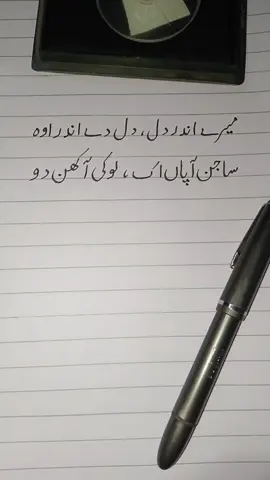 میرے اندر دل، دل دے اندر اوہ
ساجن آپاں اک، لوکی آکھن دو